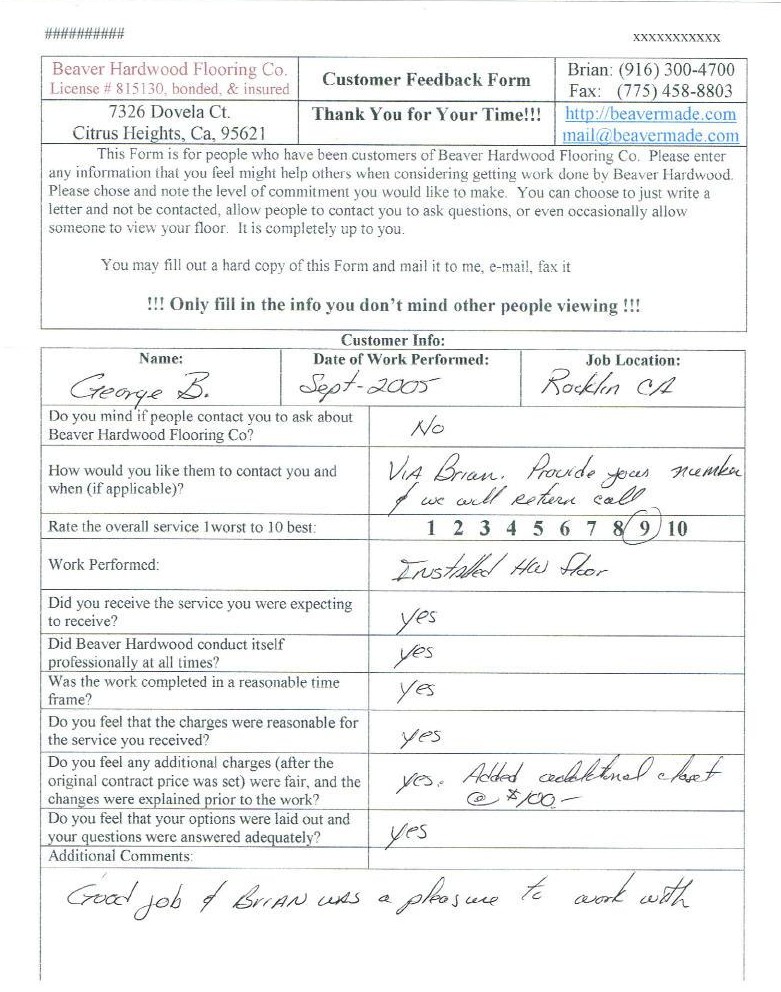 ########## xxxxxxxxxxx
Beaver Hardwood Flooring Co.
License # 815130, bonded, & insured
Customer Feedback Form
Brian: (916) 300-4700
Fax: (775) 458-8803
7326 Dovela Ct.
Citrus Heights, Ca, 95621
Thank You for Your Time!!!
http://beavermade.com
mail@beavermade.com
This Form is for people who have been customers of Beaver Hardwood Flooring Co. Please enter
any information that you feel might help others when considering getting work done by Beaver Hardwood.
Please chose and note the level of commitment you would like to make. You can choose to just write a
letter and not be contacted, allow people to contact you to ask questions, or even occasionally allow
someone to view your floor. It is completely up to you.
You may fill out a hard copy of this Form and mail it to me, e-mail, fax it
!!! Only fill in the info you don't mind other people viewing !!!
Customer Info:
Name:
George B.
Date of Work Performed:
Sept-2005
Job Location:
Rocklin CA
Do you mind if people contact you to ask about
Beaver Hardwood Flooring Co?
No
How would you like them to contact you and
when (if applicable)?
VIA Brian. Provide your number
& we will return call
Rate the overall service 1worst to 10 best:
1 2 3 4 5 6 7 8 9 10
Work Performed:
Installed HW floor
Did you receive the service you were expecting
to receive?
yes
Did Beaver Hardwood conduct itself
professionally at all times?
yes
Was the work completed in a reasonable time
frame?
yes
Do you feel that the charges were reasonable for
the service you received?
yes
Do you feel any additional charges (after the
original contract price was set) were fair, and the
changes were explained prior to the work?
yes. Added additional closet
@ $100.-
Do you feel that your options were laid out and
your questions were answered adequately?
yes
Additional Comments:
Good job & BRIAN was a pleasure to work with